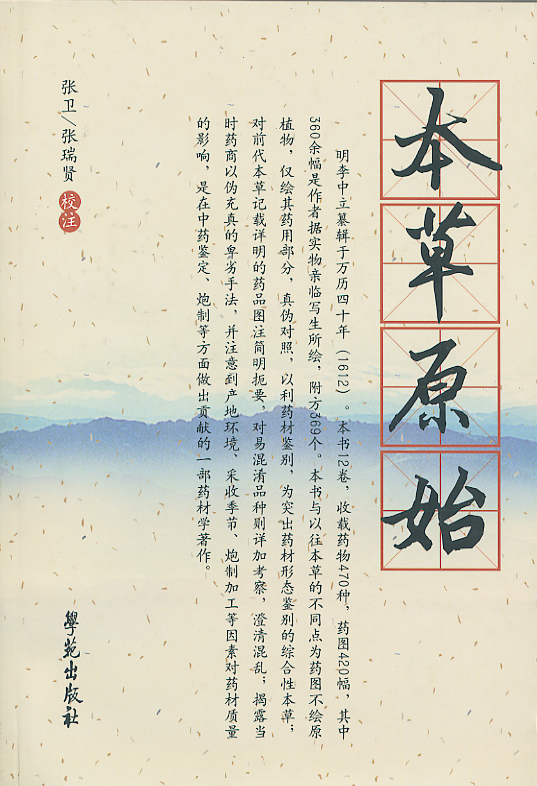 本草原始
明李中立纂辑于万历四十年（1612）。本书12卷，收载药物470种，药图420幅，其中
360余幅是作者据实物亲临写生所绘，附方369个。本书与以往本草的不同点为药图不绘原
植物，仅绘其药用部分，真伪对照，以利药材鉴别，为突出药材形态鉴别的综合性本草；
对前代本草记载详明的药品图注简明扼要，对易混淆品种则详加考察，澄清混乱；揭露当
时药商以伪充真的卑劣手法，并注意到产地环境、采收季节、炮制加工等因素对药材质量
的影响，是在中药鉴定、炮制等方面做出贡献的一部药材学著作。
张卫／张瑞贤 校注
學苑出版社